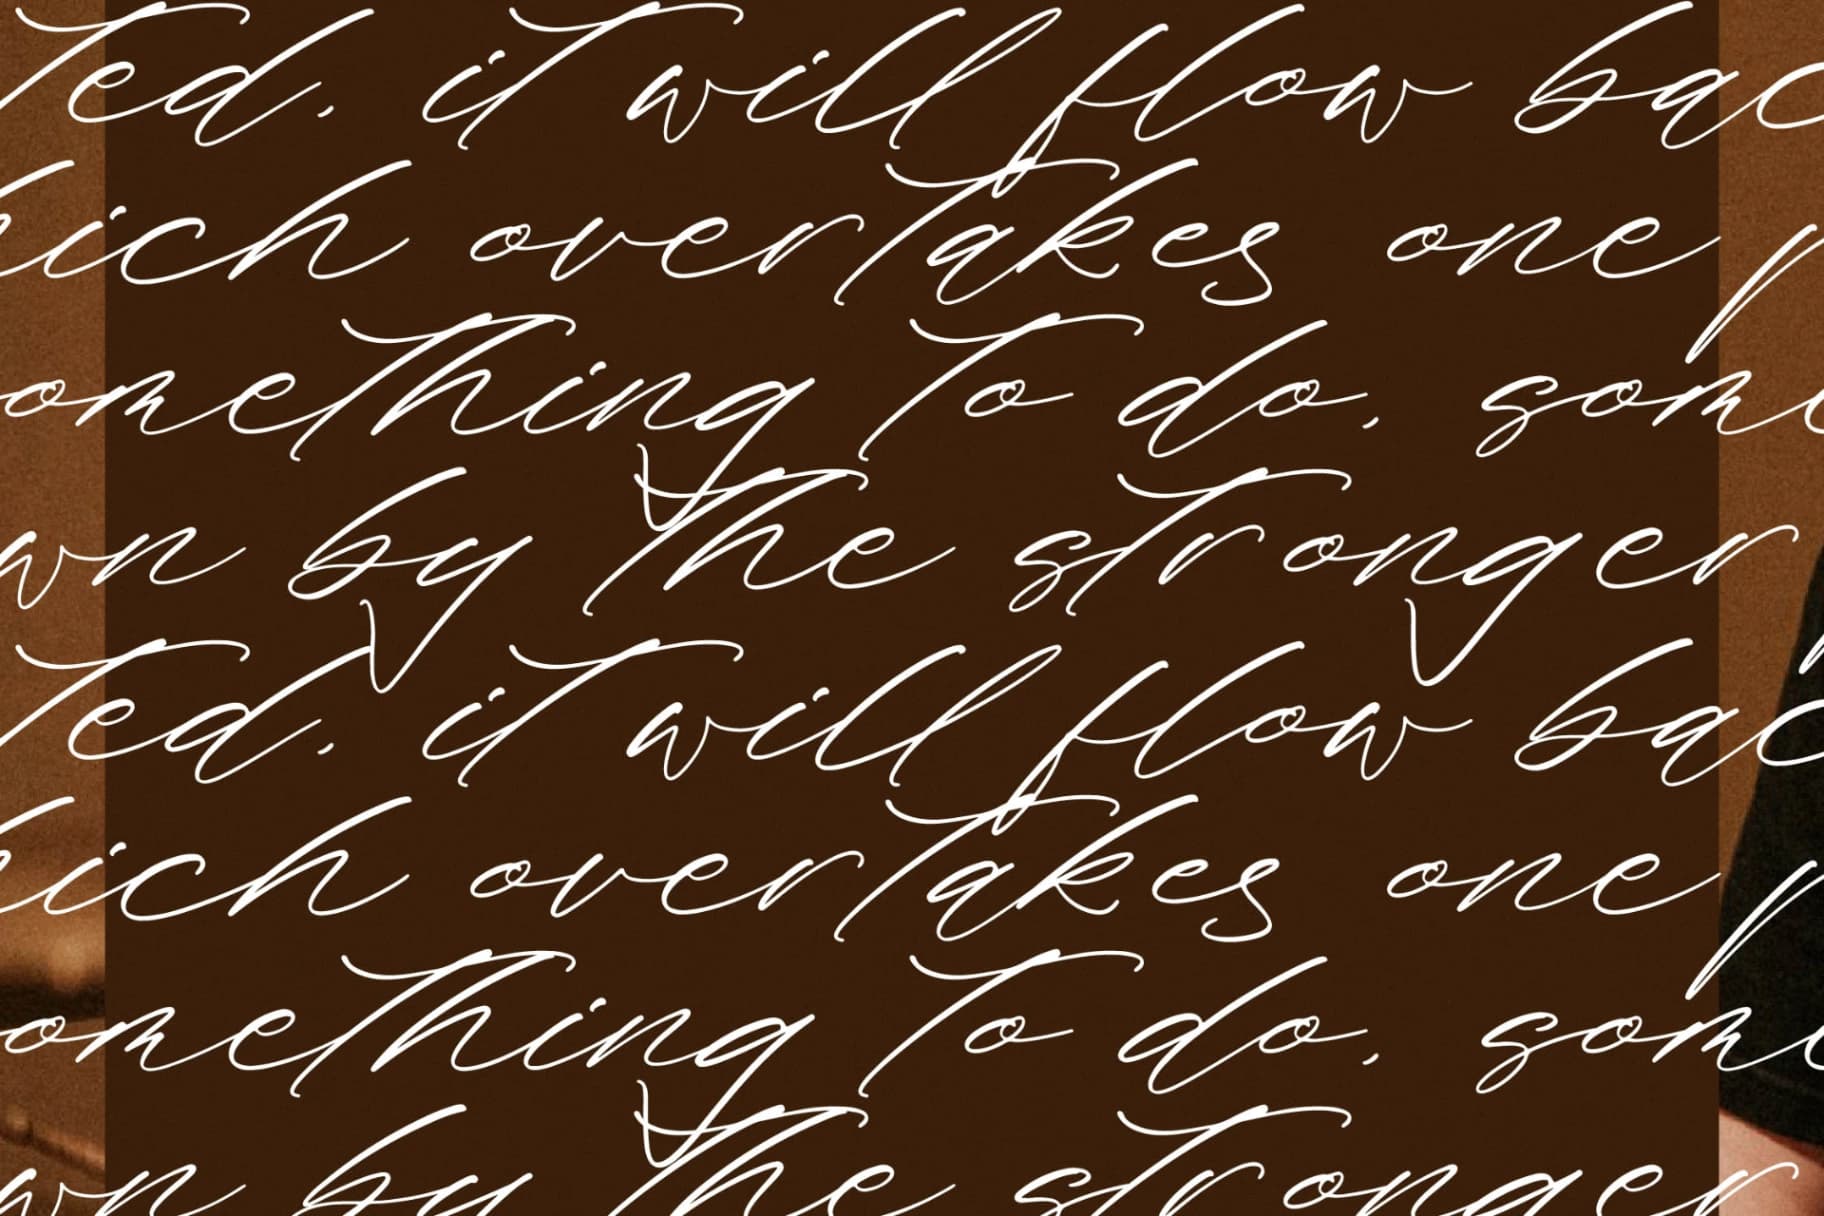 ted, it will flow bac
hich overtakes one p
omething to do, som
wn by the stronger
ted, it will flow bac
hich overtakes one p
omething to do, som
wn by the stronger